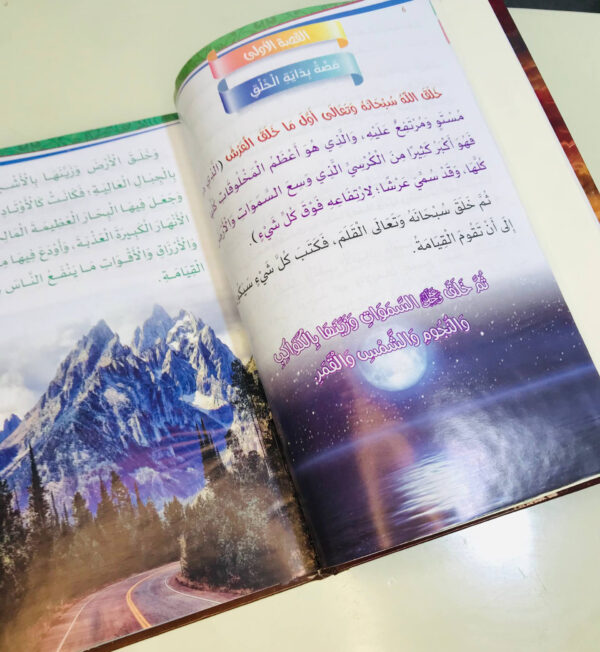 ٦
القصة الأولى
قِصَّةُ بِدَايَةِ الْخَلْقِ
خَلَقَ اللَّهُ سُبْحَانَهُ وَتَعَالَى أَوَّلَ مَا خَلَقَ الْعَرْشَ
مُسْتَوٍ وَمُرْتَفِعٌ عَلَيْهِ، وَالَّذِي هُوَ أَعْظَمُ الْمَخْلُوقَاتِ
فَهُوَ أَكْبَرُ كَثِيرًا مِنَ الْكُرْسِيِّ الَّذِي وَسِعَ السَّمَوَاتِ
كُلَّهَا، وَقَدْ سُمِّيَ عَرْشًا؛ لِارْتِفَاعِهِ فَوْقَ كُلِّ شَيْءٍ).
ثُمَّ خَلَقَ سُبْحَانَهُ وَتَعَالَى الْقَلَمَ، فَكَتَبَ كُلَّ شَيْءٍ
إِلَى أَنْ تَقُومَ الْقِيَامَةُ.
ثُمَّ خَلَقَ ﷻ السَّمَوَاتِ وَزَيَّنَهَا بِالْكَوَاكِبِ
وَالنُّجُومِ وَالشَّمْسِ وَالْقَمَرِ.
وَخَلَقَ الْأَرْضَ وَزَيَّنَهَا
بِالْجِبَالِ الْعَالِيَةِ؛ فَكَانَتْ كَالْأَوْتَادِ
وَجَعَلَ فِيهَا الْبِحَارَ الْعَظِيمَةَ
الْأَنْهَارَ الْكَبِيرَةَ الْعَذْبَةَ، وَأَوْدَعَ فِيهَا
وَالْأَرْزَاقِ وَالْأَقْوَاتِ مَا يَنْفَعُ النَّاسَ
الْقِيَامَةِ.